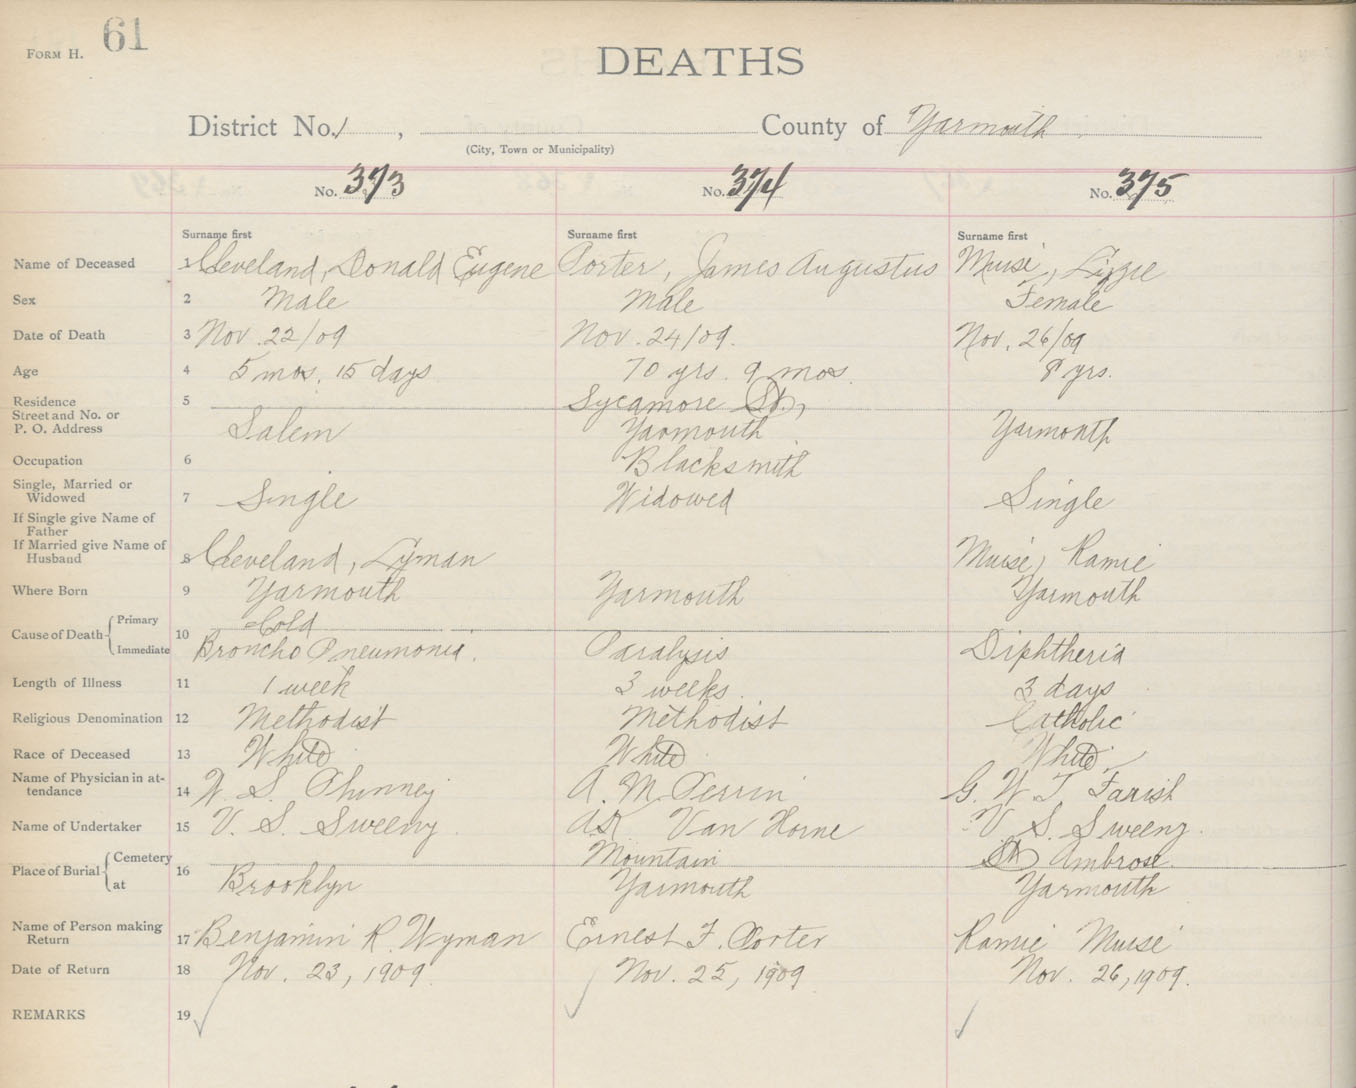 FORM H. 61
DEATHS
District No. 1, County of Yarmouth
(City, Town or Municipality)
No. 373 No. 374 No. 375
Surname first Surname first Surname first
Name of Deceased 1 Cleveland, Donald Eugene Porter, James Augustus Muise, Lizzie
Sex 2 Male Male Female
Date of Death 3 Nov. 22/09 Nov. 24/09. Nov. 26/09
Age 4 5 mos. 15 days 70 yrs. 9 mos. 8 yrs.
Residence 5 Sycamore St.,
Street and No. or
P. O. Address Salem Yarmouth Yarmouth
Occupation 6 Blacksmith
Single, Married or
Widowed 7 Single Widowed Single
If Single give Name of
Father
If Married give Name of
Husband 8 Cleveland, Lyman Muise, Ramie
Where Born 9 Yarmouth Yarmouth Yarmouth
Cause of Death Primary 10 Cold
Immediate Broncho Pneumonia. Paralysis Diphtheria
Length of Illness 11 1 week 3 weeks. 3 days
Religious Denomination 12 Methodist Methodist Catholic
Race of Deceased 13 White White White
Name of Physician in at-
tendance 14 W. S. Phinney A. M. Perrin G. W. T. Farish
Name of Undertaker 15 V. S. Sweeny A.K. Van Horne V. S. Sweeny.
Place of Burial Cemetery 16 Mountain St Ambrose
at Brooklyn Yarmouth Yarmouth
Name of Person making
Return 17 Benjamin R. Wyman Ernest F. Porter Ramie Muise
Date of Return 18 Nov. 23, 1909 Nov. 25, 1909 Nov. 26, 1909.
REMARKS 19